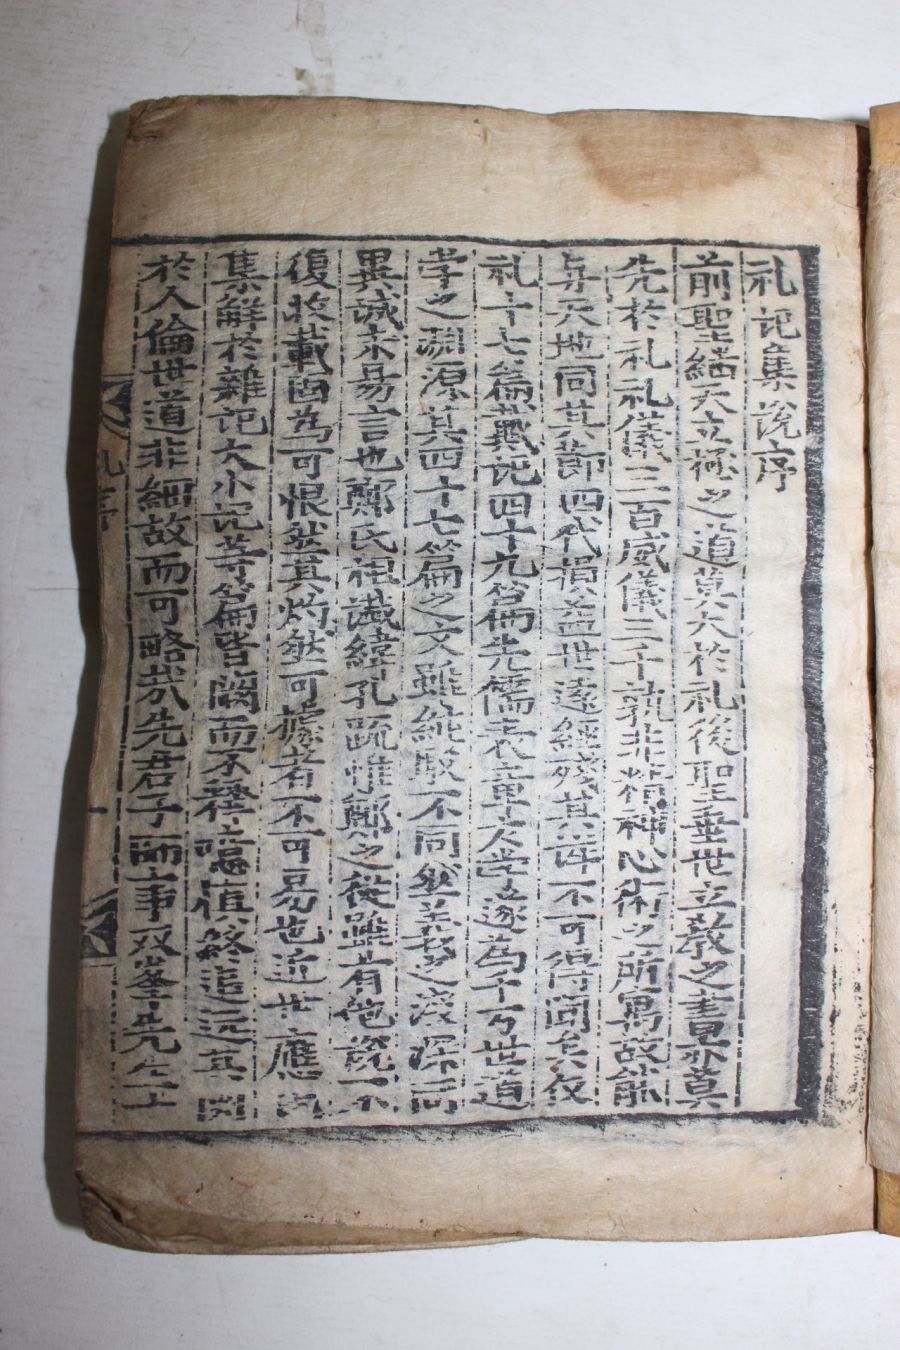 礼記集說序
前聖繼天立極之道莫大於礼後聖垂世立敎之書亦莫
先於礼礼儀三百威儀三千孰非精神心術之所寓故能
与天地同其節四代損益世遠經殘其詳不可得聞矣仪
礼十七篇戴記四十九篇先儒表章大学遂為千万世道
学之淵源其四十七篇之文雖純駁不同然義之浅深同
異誠未易言也鄭氏祖讖緯孔疏惟鄭之從雖有他說不
復收載固為可恨然其灼然可據者不可易也近世應氏
集解於雜記大小記等篇皆闕而不釋噫慎終追远其関
於人倫世道非細故而可略哉先君子師事双峯先生十
礼序